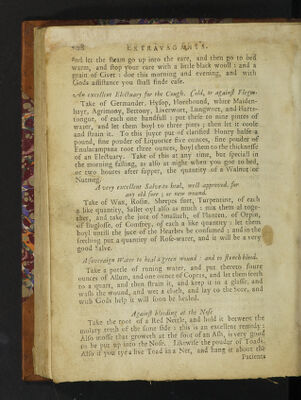 EXTRAVAGANTS.
and let the steam go up into the eare, and then go to bed
warm, and stop your eare with a little black wooll: and a
grain of Civet: doe this morning and evening, and with
Gods assistance you shall finde ease.
An excellent Electuary for the Cough, Cold, or against Flegm.
Take of Germander, Hysop, Horehound, white Maiden-
hayr, Agrimony, Bettony, Liverwort, Lungwort, and Harts-
tongue, of each one handfull: put these to nine pintes of
water, and let them boyl to three pints; then let it coole
and strain it. To this juyce put of clarified Honey halfe a
pound, fine pouder of Liquorice five ounces, fine pouder of
Enulacampana root three ounces, boyl them to the thicknesse
of an Electuary. Take of this at any time, but special in
the morning fasting, as also at night when you goe to bed,
or two houres after supper, the quantity of a Walnut or
Nutmeg.
A very excellent Salve to heal, well approved, for
any old sore; or new wound.
Take of Wax, Rosin, Sheeps suet, Turpentine, of each
a like quantity, Sallet oyl also as much: mix them al toge-
ther, and take the juce of Smallach, of Planten, of Orpin,
of Buglosse, of Comfrey, of each a like quantity: let them
boyl untill the juce of the Hearbes be consumed: and in the
seething put a quantity of Rose-water, and it will be a very
good Salve.
A soveraign Water to heal a green wound: and to stanch bloud.
Take a pottle of runing water, and put thereto foure
ounces of Allum, and one ounce of Copras, and let them seeth
to a quart, and then strain it, and keep it in a glasse, and
wash the wound, and wet a cloth, and lay to the Sore, and
with Gods help it will soon be healed.
Against bleeding at the Nose
Take the root of a Red Nettle, and hold it between the
molary teeth of the same side: this is an excellent remedy:
Also mosse that groweth at the foot of an Ash, is very good
to be put up into the Nose. Likewise the pouder of Toads.
Also if you tye a live Toad in a Net, and hang it about the
Patients